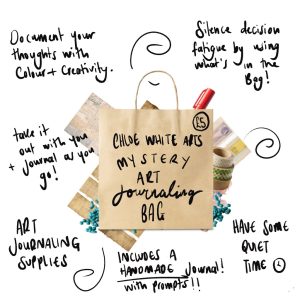 Document your
thoughts with
Colour + Creativity.
Silence decision
fatigue by using
what's in the
Bag!
take it
out with you
+ Journal as you
go!
£5
CHLOE WHITE ARTS
MYSTERY
ART
Journaling
BAG
ART
JOURNALING
SUPPLIES
INCLUDES A
HANDMADE Journal!
with prompts!!
HAVE SOME
QUIET
TIME